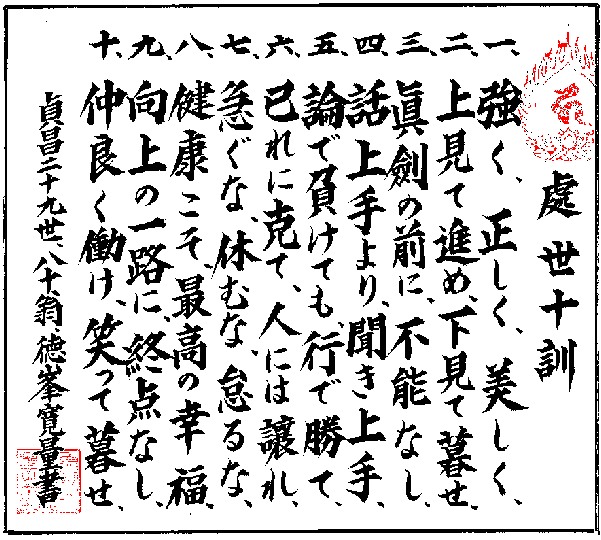 處世十訓
一、強く、正しく、美しく、
二、上見て進め、下見て暮せ、
三、眞劍の前に、不能なし、
四、話上手より、聞き上手、
五、論で負けても、行で勝て、
六、己れに克て、人には譲れ、
七、急ぐな、休むな、怠るな、
八、健康こそ、最高の幸福、
九、向上の一路に、終点なし、
十、仲良く働け、笑って暮せ、
貞昌二十九世、八十翁、徳峯寛量書